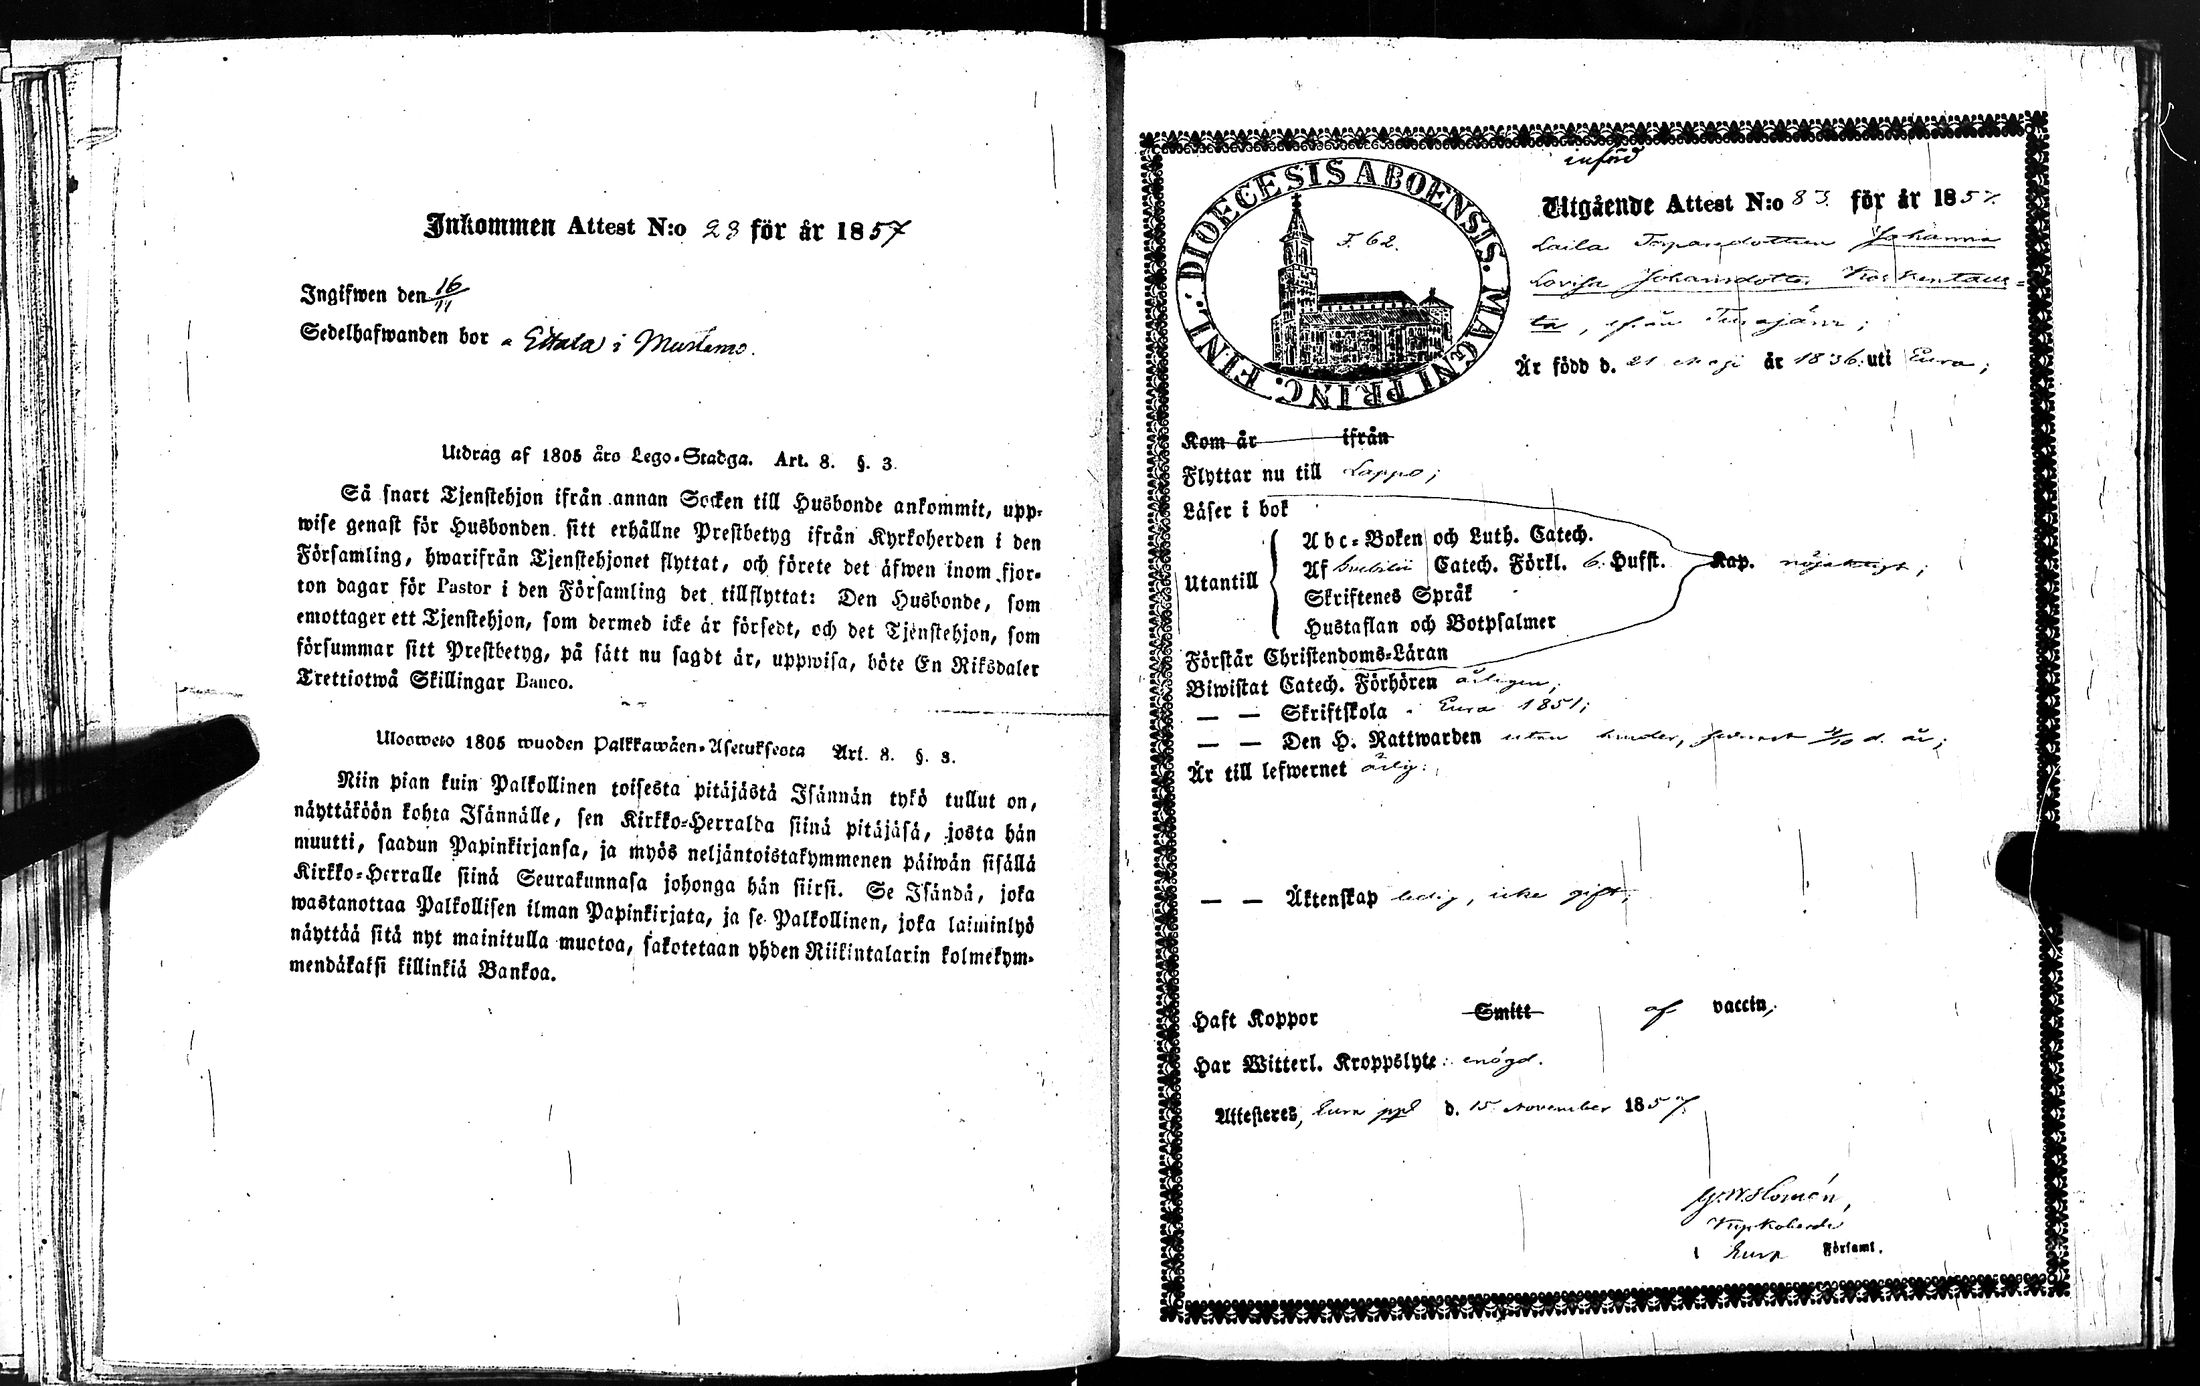 Inkommen Attest N:o 23 för år 1857
Ingifwen den 16/11
Sedelhafwanden bor a Ettala i Mustamo.
Utdrag af 1805 års Lego-Stadga. Art. 8. §. 3.
Så snart Tjenstehjon ifrån annan Socken till Husbonde ankommit, upp-
wise genast för Husbonden sitt erhållne Prestbetyg ifrån Kyrkoherden i den
Församling, hwarifrån Tjenstehjonet flyttat, och förete det äfwen inom fjor-
ton dagar för Pastor i den Församling det tillflyttat: Den Husbonde, som
emottager ett Tjenstehjon, som dermed icke är försedt, och det Tjenstehjon, som
försummar sitt Prestbetyg, på sätt nu sagdt är, uppwisa, böte En Riksdaler
Trettiotwå Skillingar Banco.
Ulosweto 1805 wuoden Palkkawäen-Asetuksesta Art. 8. §. 3.
Niin pian kuin Palkollinen toisesta pitäjästä Isännän tykö tullut on,
näyttäköön kohta Isännälle, sen Kirkko-Herralda siinä pitäjäsä, josta hän
muutti, saadun Papinkirjansa, ja myös neljäntoistakymmenen päiwän sisällä
Kirkko-Herralle siinä Seurakunnasa johonga hän siirsi. Se Isändä, joka
wastanottaa Palkollisen ilman Papinkirjata, ja se Palkollinen, joka laiminlyö
näyttää sitä nyt mainitulla muotoa, sakotetaan yhden Riikintalarin kolmekym-
mendäkaksi killinkiä Bankoa.
införd
FINL: DIOECESIS ABOENSIS. MAGNI PRINC.
F. 62.
Utgående Attest N:o 83. för år 1857.
Johanna
Lovisa Johansdotter
ta, ifrån
Är född d. 21 Maji år 1836. uti Eura;
Kom år ifrån
Flyttar nu till Lappo;
Läser i bok
Utantill
Abc-Boken och Luth. Catech.
Af Svebilii Catech. Förkl. 6. Hufst. Kap. nöjaktigt;
Skriftenes Språk
Hustaflan och Botpsalmer
Förstår Christendoms-Läran
Biwistat Catech. Förhören årligen;
— — Skriftskola Eura 1851;
— — Den H. Nattwarden utan hinder, senast d. år;
Är till lefwernet ärlig;
— — Äktenskap ledig, icke gift;
Haft Koppor Smitt af vaccin;
Har Witterl. Kroppslyte: enögd.
Attesteres, Eura ppl d. 15 November 1857.
Kyrkoherde
i Eura Församl.